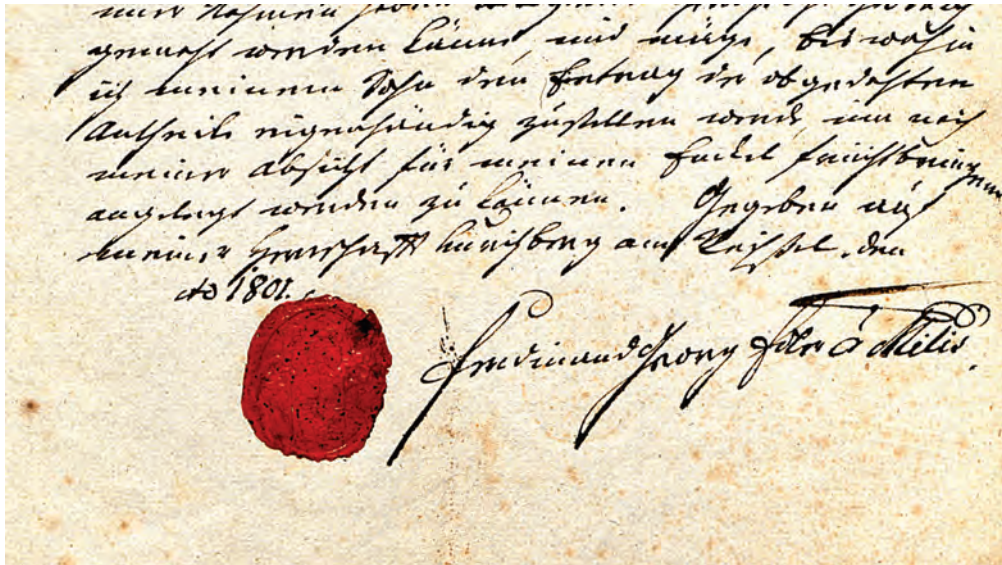 gemacht werden könne, und möge, bis wohin
ich meinem Sohn den Ertrag der obgedachten
Antheile eigenhändig zustellen werde um nach
meiner Absicht für meinen Enckel fruchtbringend
angelegt werden zu können. Gegeben auf
meiner Herrschaft am den
1801.
Ferdinand Georg Edler à Mitis.